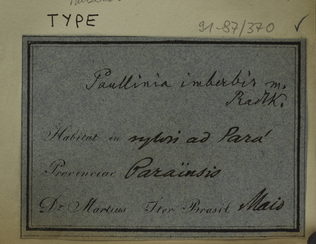 TYPE
91-87/370 ✓
Paullinia imberbis m.
Radlk.
Habitat in sylvis ad Pará
Provinciae Paraënsis
Dr. Martius Iter Brasil. Maio